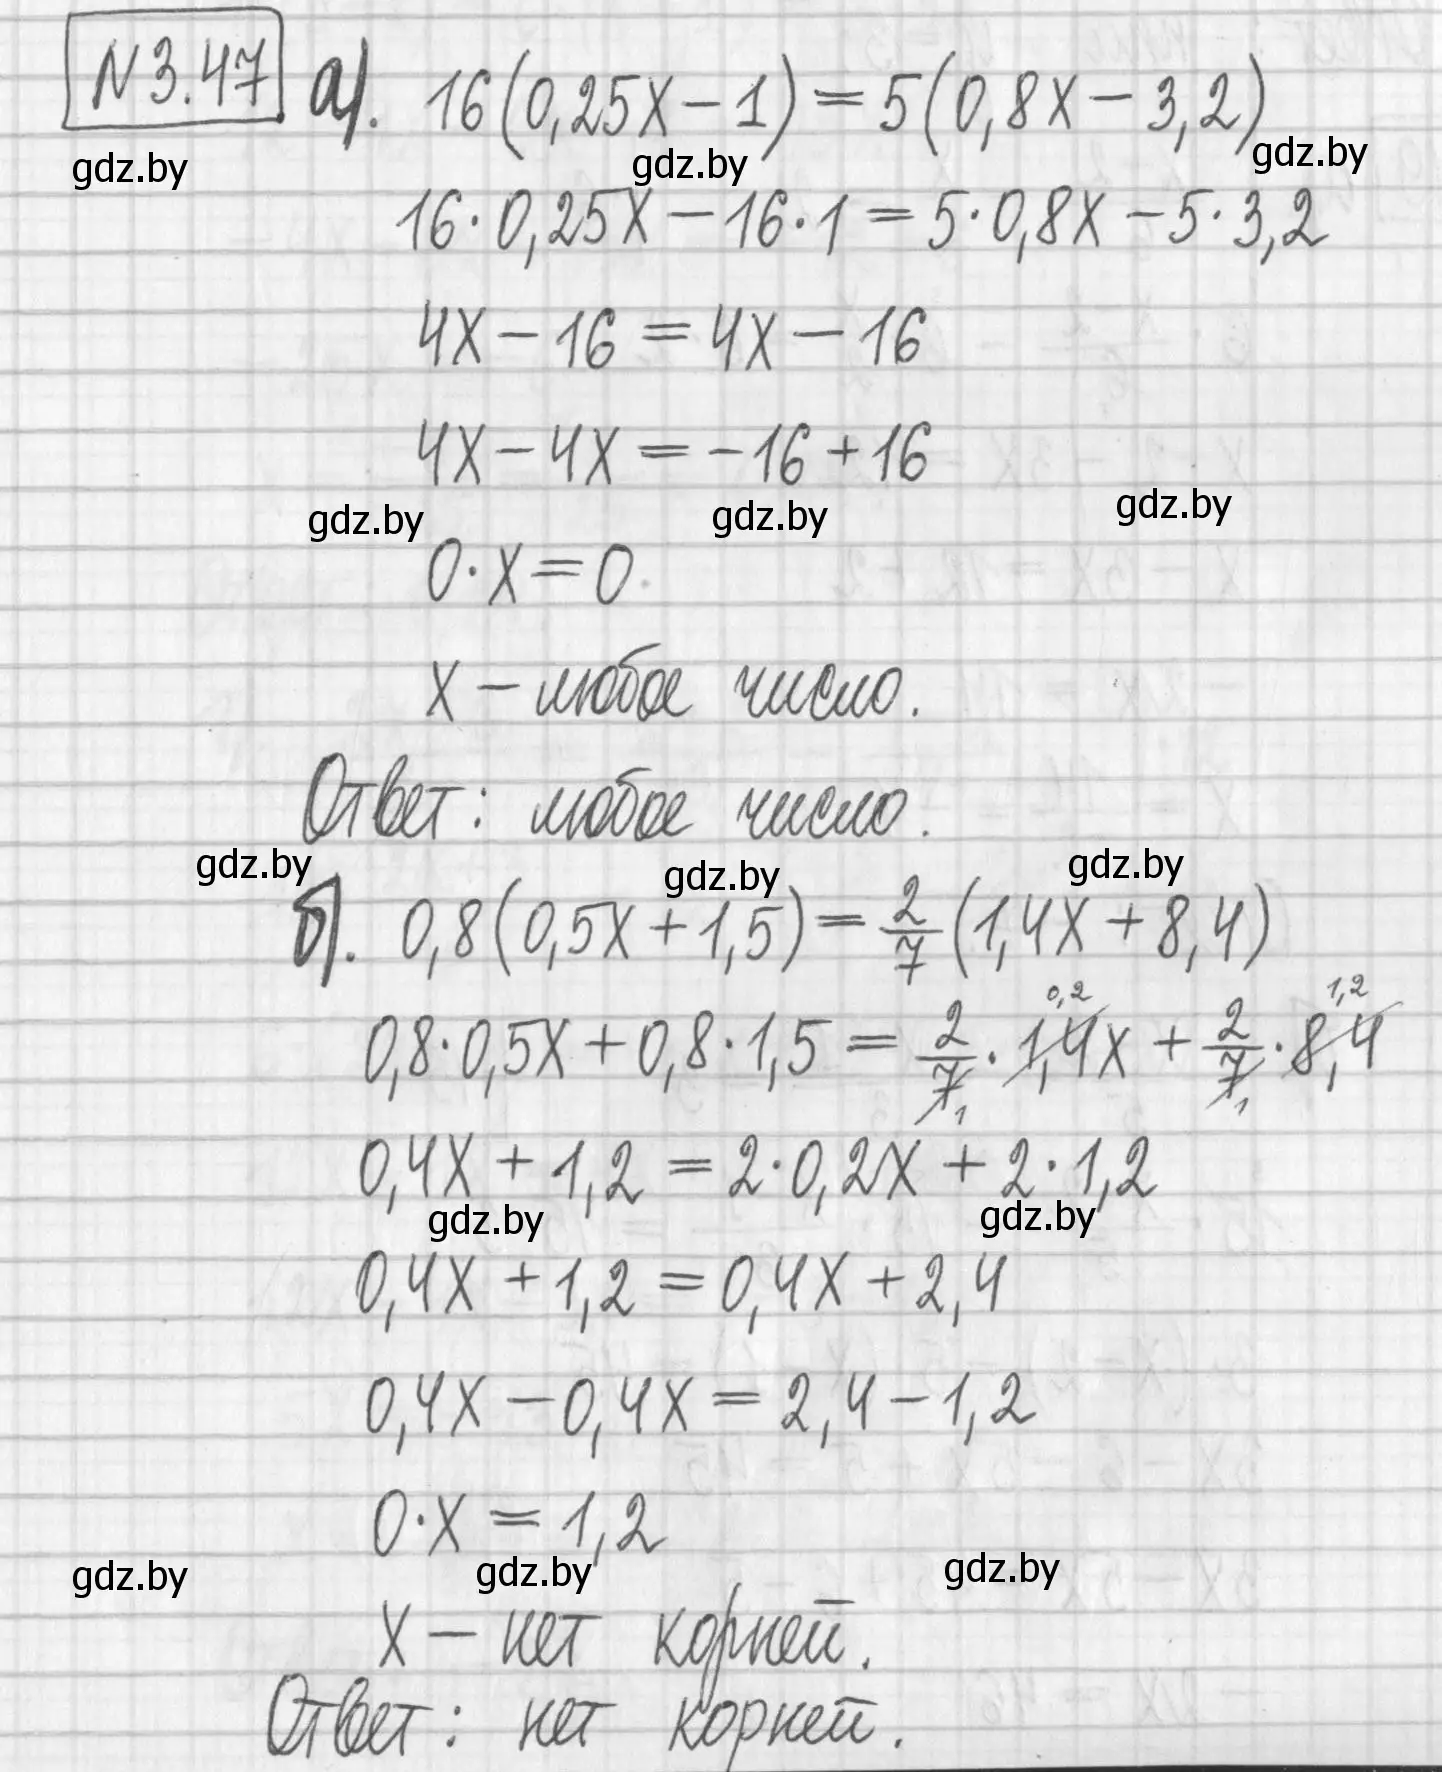 N 3.47 а). 16(0,25x − 1) = 5(0,8x − 3,2)
gdz.by gdz.by gdz.by
16·0,25x − 16·1 = 5·0,8x − 5·3,2
4x − 16 = 4x − 16
4x − 4x = −16 + 16
gdz.by gdz.by gdz.by
0·x = 0
x − любое число.
Ответ: любое число.
gdz.by gdz.by gdz.by
б). 0,8(0,5x + 1,5) = 2/7 (1,4x + 8,4)
0,2 1,2
0,8·0,5x + 0,8·1,5 = 2/7 · 1,4x + 2/7 · 8,4
1 1
0,4x + 1,2 = 2·0,2x + 2·1,2
gdz.by gdz.by
0,4x + 1,2 = 0,4x + 2,4
0,4x − 0,4x = 2,4 − 1,2
0·x = 1,2
gdz.by gdz.by gdz.by
x − нет корней.
Ответ: нет корней.